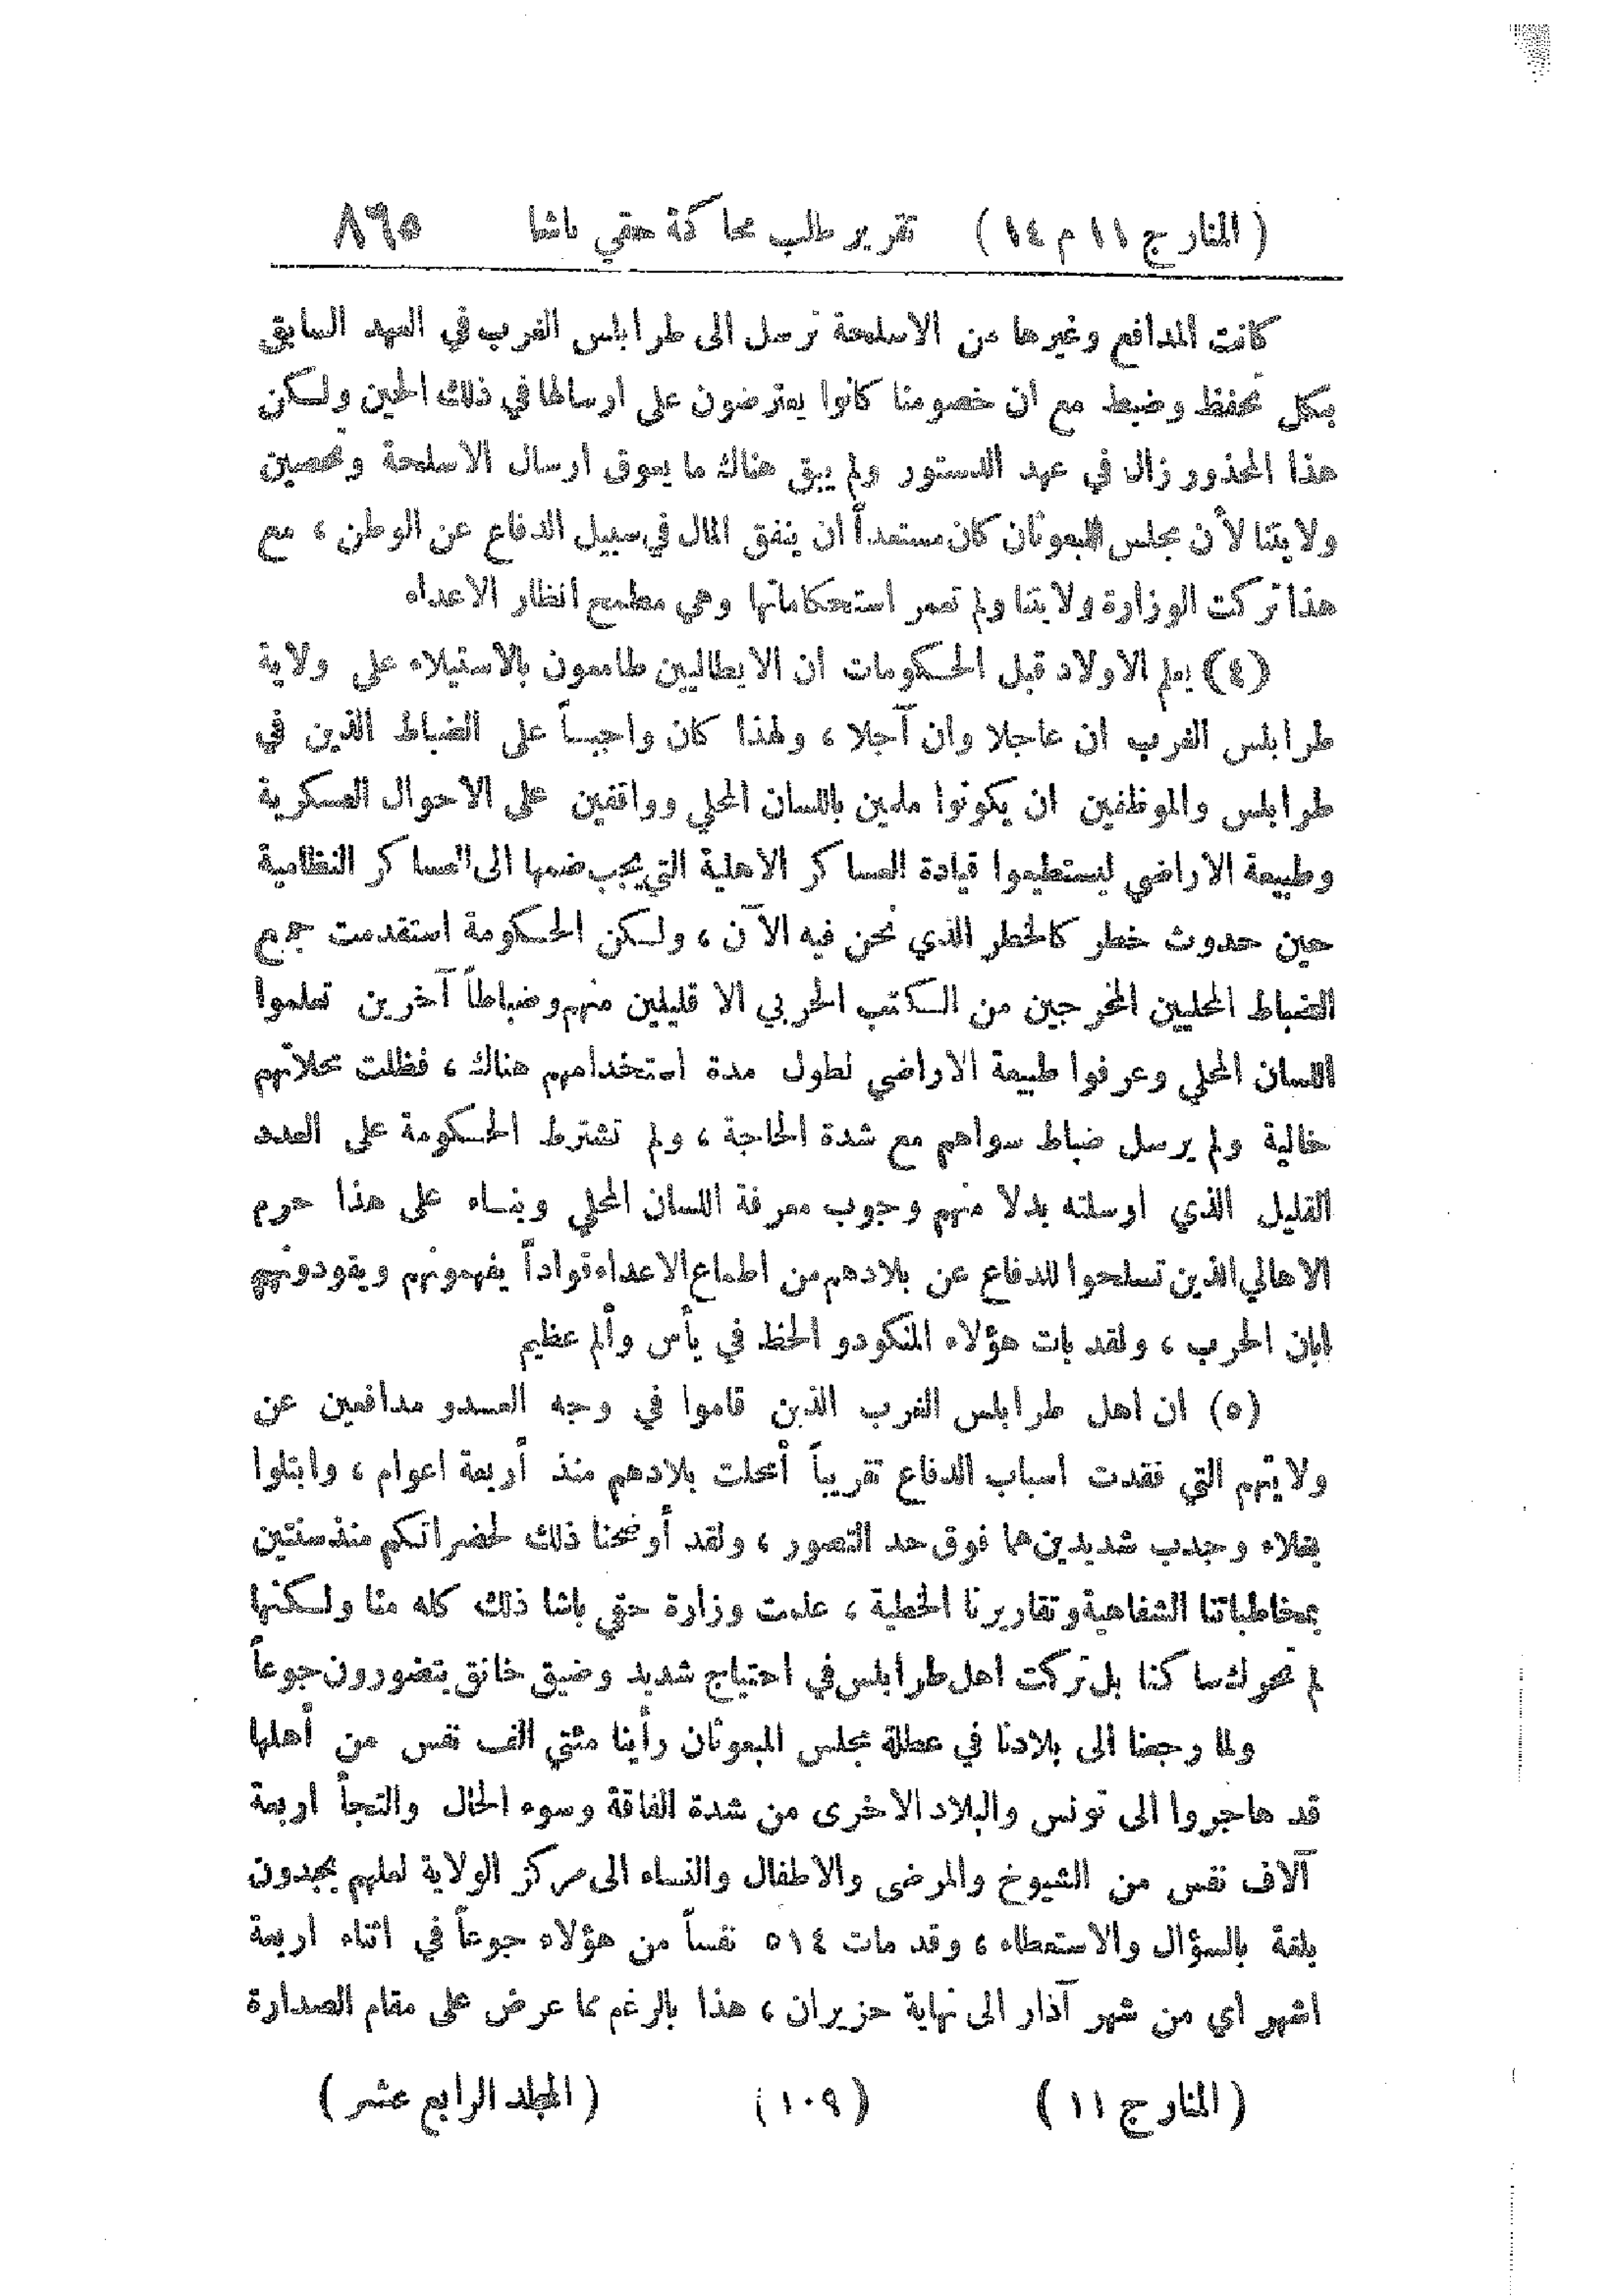 (المنار ج ١١ م ١٤) تقرير طلب محاكمة حقي باشا ٨٦٥
كانت المدافع وغيرها من الاسلحة ترسل الى طرابلس الغرب في العهد السابق
بكل تحفظ وضبط مع ان خصومنا كانوا يعترضون على ارسالها في ذلك الحين ولكن
هذا المحذور زال في عهد الدستور ولم يبق هناك ما يعوق ارسال الاسلحة وتحصين
ولايتنا لأن مجلس المبعوثان كان مستعداً ان ينفق المال في سبيل الدفاع عن الوطن ، مع
هذا تركت الوزارة ولايتنا ولم تعمر استحكاماتها وهي مطمح انظار الاعداء
(٤) يعلم الاولاد قبل الحكومات ان الايطاليين طامعون بالاستيلاء على ولاية
طرابلس الغرب ان عاجلا وان آجلا ، ولهذا كان واجباً على الضباط الذين في
طرابلس والموظفين ان يكونوا ملمين باللسان المحلي وواقفين على الاحوال العسكرية
وطبيعة الاراضي ليستطيعوا قيادة العساكر الاهلية التي يجب ضمها الى العساكر النظامية
حين حدوث خطر كالخطر الذي نحن فيه الآن ، ولكن الحكومة استقدمت جميع
الضباط المحليين المخرجين من المكتب الحربي الا قليلين منهم وضباطاً آخرين تعلموا
اللسان المحلي وعرفوا طبيعة الاراضي لطول مدة استخدامهم هناك ، فظلت محلاتهم
خالية ولم يرسل ضباط سواهم مع شدة الحاجة ، ولم تشترط الحكومة على العدد
القليل الذي ارسلته بدلا منهم وجوب معرفة اللسان المحلي وبناء على هذا حرم
الاهالي الذين تسلحوا للدفاع عن بلادهم من اطماع الاعداء قواداً يفهمونهم ويقودونهم
ابان الحرب ، ولقد بات هؤلاء المنكودو الحظ في يأس وألم عظيم
(٥) ان اهل طرابلس الغرب الذين قاموا في وجه العدو مدافعين عن
ولايتهم التي فقدت اسباب الدفاع تقريباً أمحلت بلادهم منذ أربعة اعوام ، وابتلوا
بغلاء وجدب شديدين هما فوق حد التصور ، ولقد أوضحنا ذلك لحضراتكم منذ سنتين
بمخاطباتنا الشفاهية وتقاريرنا الخطية ، علمت وزارة حقي باشا ذلك كله منا ولكنها
لم تحرك ساكنا بل تركت اهل طرابلس في احتياج شديد وضيق خانق يتضورون جوعاً
ولما رجعنا الى بلادنا في عطلة مجلس المبعوثان رأينا مئتي الف نفس من أهلها
قد هاجروا الى تونس والبلاد الاخرى من شدة الفاقة وسوء الحال والتجأ اربعة
آلاف نفس من الشيوخ والمرضى والاطفال والنساء الى مركز الولاية لعلهم يجدون
بلغة بالسؤال والاستعطاء ، وقد مات ٥١٤ نفساً من هؤلاء جوعاً في اثناء اربعة
اشهر اي من شهر آذار الى نهاية حزيران ، هذا بالرغم مما عرض على مقام الصدارة
(المنار ج ١١) (١٠٩) (المجلد الرابع عشر)